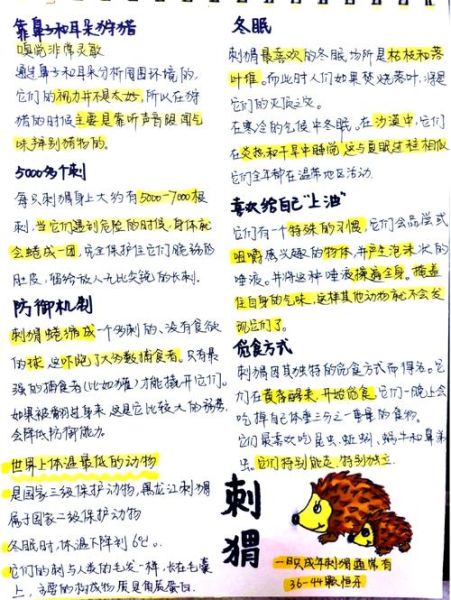 靠鼻子和耳朵狩猎
嗅觉非常灵敏
通过鼻子和耳朵分析周围环境的,
它们的视力并不是太好,所以在狩
猎的时候主要是靠听声音跟闻气
味辨别猎物的。
5000多个刺
每只刺猬身上大约有5000-7000根
刺,当它们遇到危险的时候,身体就
会蜷成一团,完全保护住它们脆弱的
肚皮,留给敌人无比尖锐的长刺。
防御机制
刺猬蜷缩成一个多刺的、没有食欲
的球,这吓跑了大多数捕食者。只有最
强的捕食者(比如獾)才能撬开它们。
如果被翻过身来,这是它比较大的弱势,
会降低防御能力
世界上体温最低的动物
是国家三级保护动物,黑龙江刺猬
属于国家二级保护动物
冬眠时,体温下降到6℃。
它们的刺与人类的毛发一样,长在毛囊
上,主要的构成物质是角质蛋白.
冬眠
刺猬最喜欢的冬眠场所是枯枝和落
叶堆。而此时人们如果焚烧落叶,将是
它们的灭顶之灾。
在寒冷的气候中冬眠。在沙漠中,它们
在炎热和干旱中睡觉,这与夏眠过程相似
它们全年都在温带地区活动.
喜欢给自己"上油"
它们有一个特殊的习惯,它们会品尝或
咀嚼感兴趣的物体,并产生泡沫状的
唾液。并将这种唾液擦遍全身。掩盖
住自身的气味,这样其他动物就不会发
现它们了。
觅食方式
刺猬因其独特的觅食方式而得名。它
们在黄昏醒来,开始觅食,它们一晚上会
吃掉自己体重三分之一重量的食物。
它们最喜欢吃昆虫、蚯蚓、蜗牛和鼻涕
虫,它们特别能走,特别独立.
刺
猬
一只成年刺猬通常有
36-44颗恒牙